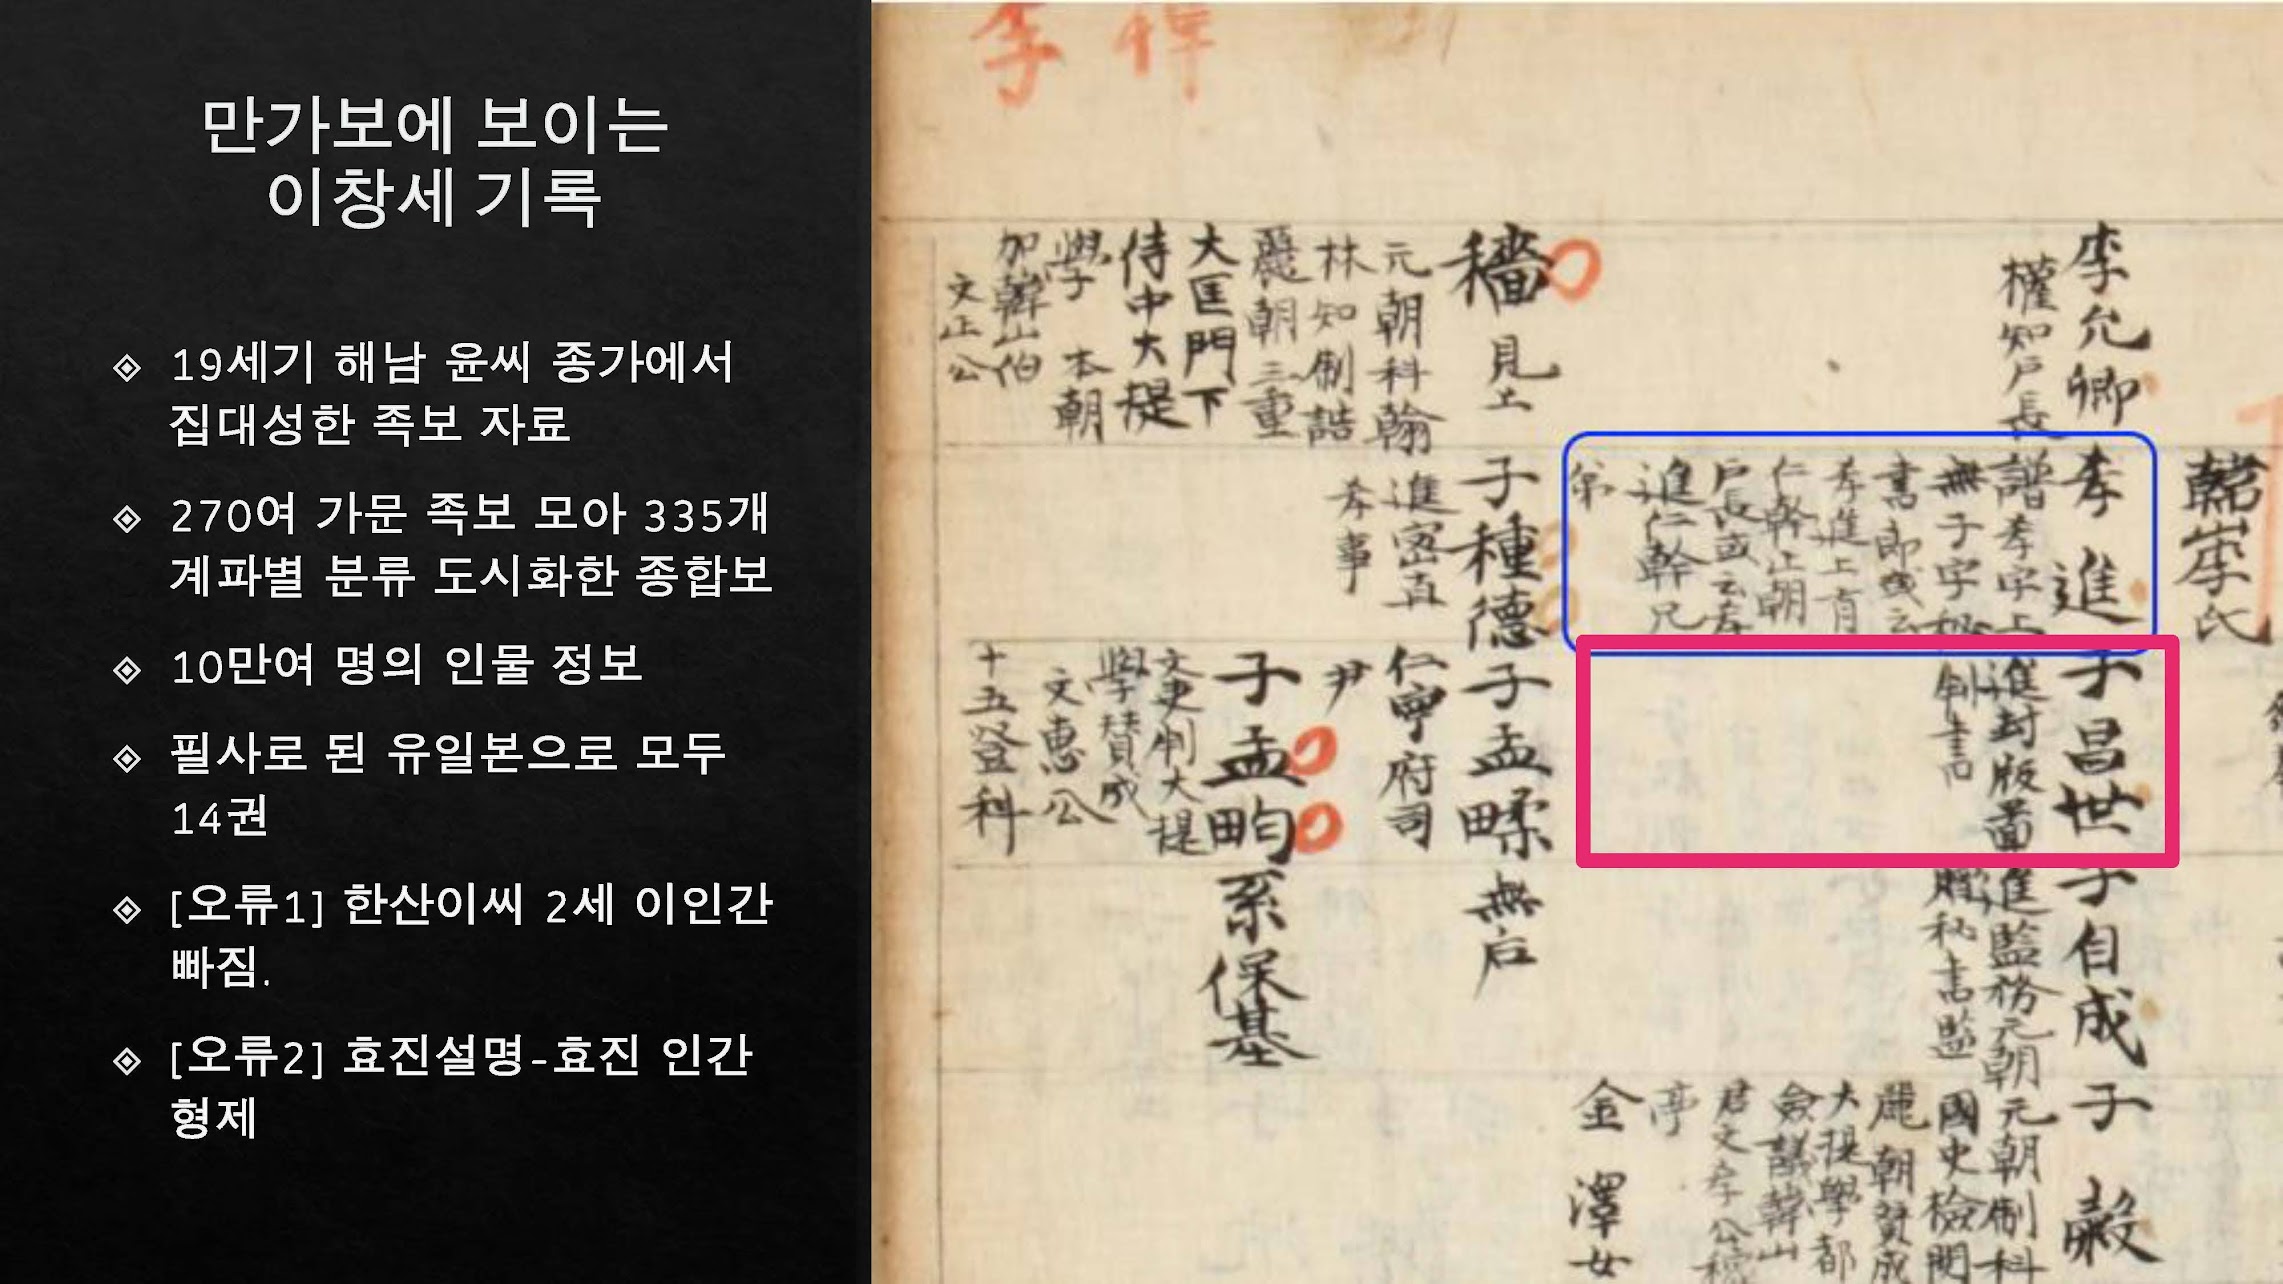 만가보에 보이는
이창세 기록
19세기 해남 윤씨 종가에서
집대성한 족보 자료
270여 가문 족보 모아 335개
계파별 분류 도시화한 종합보
10만여 명의 인물 정보
필사로 된 유일본으로 모두
14권
[오류1] 한산이씨 2세 이인간
빠짐.
[오류2] 효진설명-효진 인간
형제
韓山李氏
李允卿
權知戶長
孝進
譜孝字上
無子字
書郎或云
孝進上有
仁幹正朝
戶長或云孝
進仁幹兄
弟
子昌世
進封版圖
判書
子自成
進監務元朝
贈秘書監
子穀
元朝制科
國史檢閱
麗朝贊成
大提學都
僉議韓山
君文孝公
亭
金澤女
穡
見上
元朝科翰
林知制誥
麗朝三重
大匡門下
侍中大提
學 本朝
加韓山伯
文正公
子種德
進密直
孝事
子孟畇
仁寧府司
尹
無后
子孟畇
文吏判大提
學贊成
文惠公
十五登科
系保基